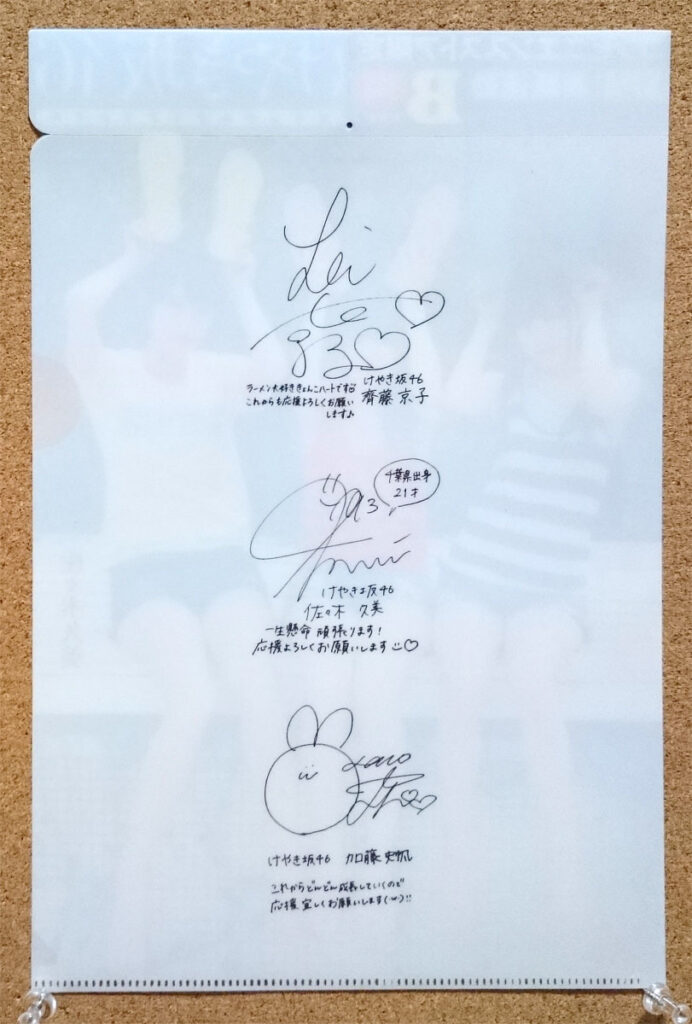 ラーメン大好ききょんこハートです♡
これからも応援よろしくお願い
します♪
けやき坂46
齊藤 京子
千葉県出身
21才
けやき坂46
佐々木 久美
一生懸命 頑張ります!
応援よろしくお願いします
けやき坂46 加藤 史帆
これからどんどん成長していくので
応援宜しくお願いします(･ω･)!!